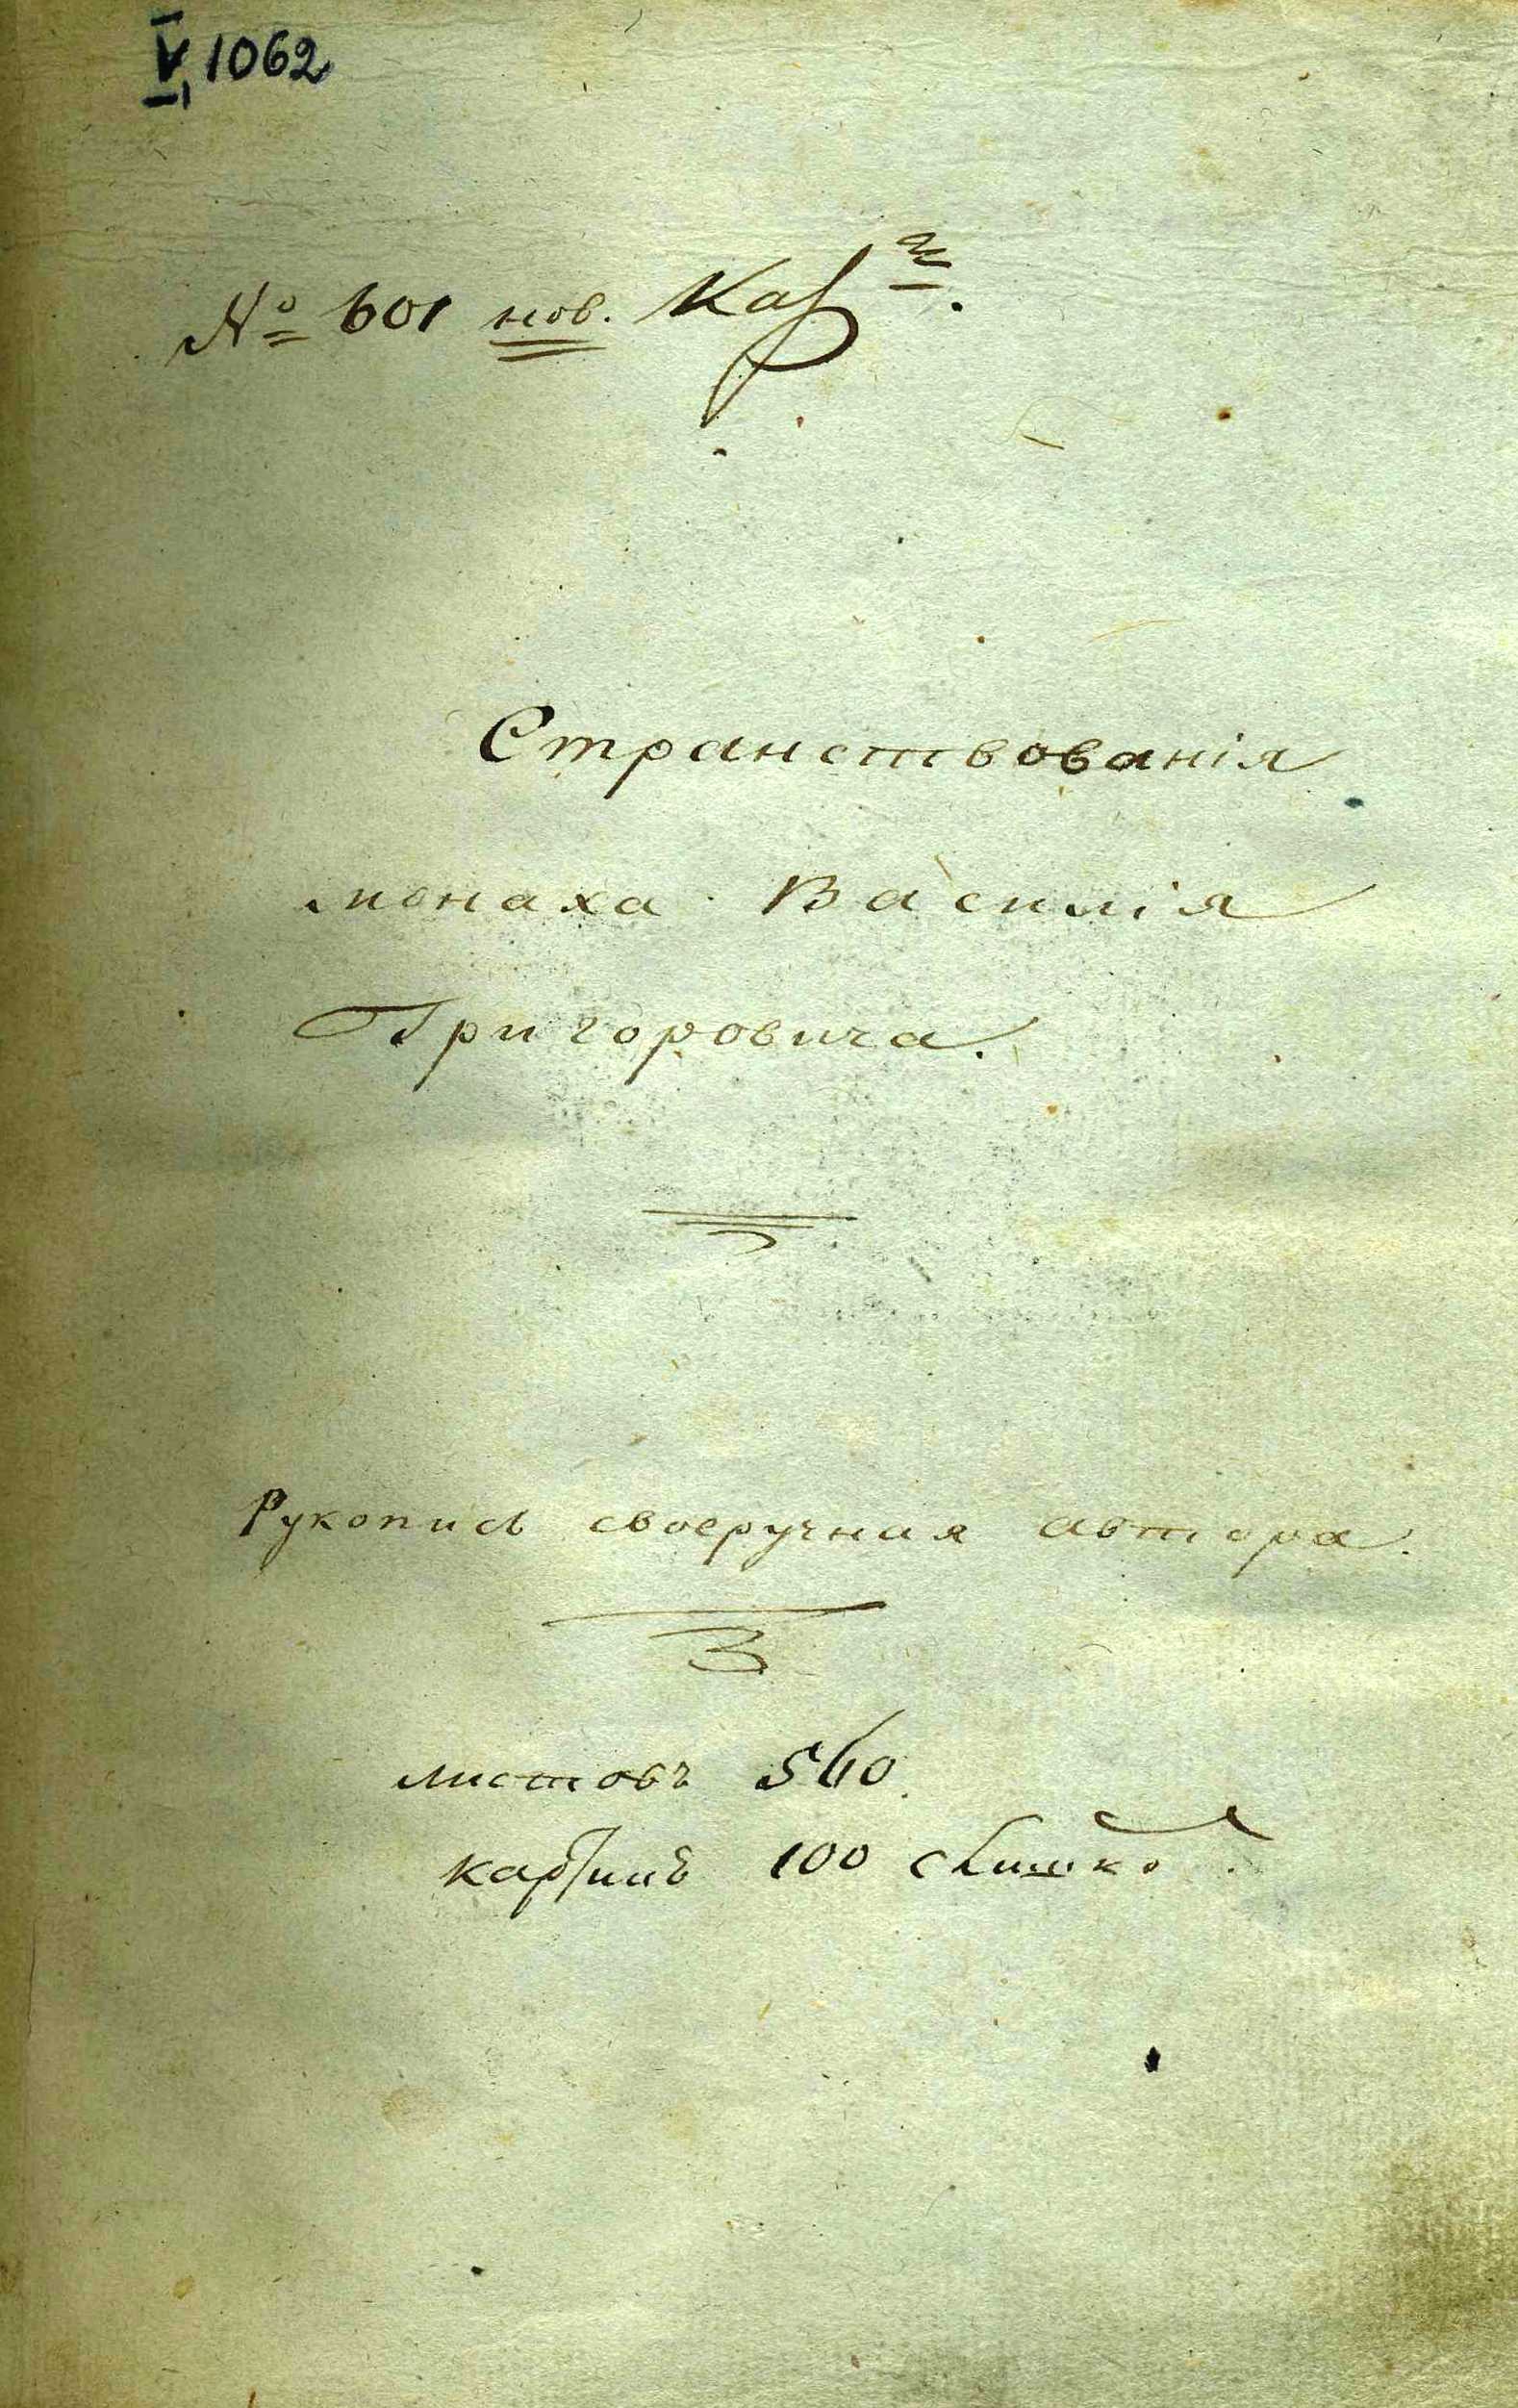 V, 1062
№ 601 нов.
Странствованія
монаха Василія
Григоровича.
Рукопись своеручная автора.
листовъ 560.
картинъ 100 слишко